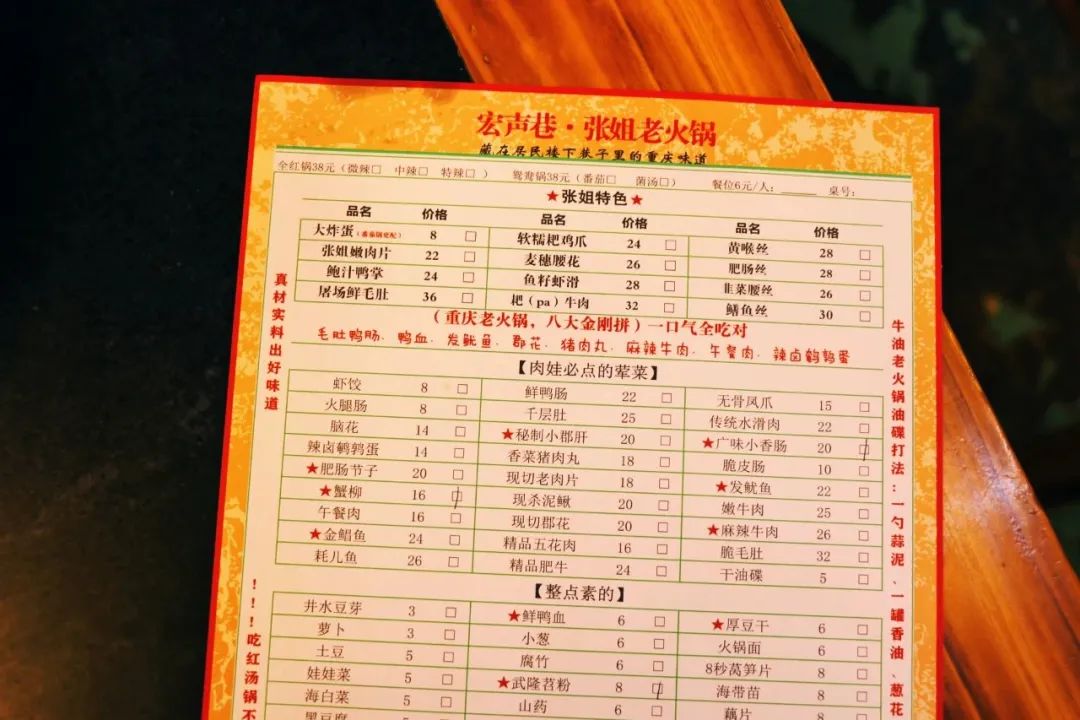 宏声巷·张姐老火锅
藏在居民楼下巷子里的重庆味道
全红锅38元（微辣□ 中辣□ 特辣□ ） 鸳鸯锅38元（番茄□ 菌汤□） 餐位6元/人：____ 桌号：
★张姐特色★
品名 价格 品名 价格 品名 价格
大炸蛋（番茄锅绝配） 8 □ 软糯耙鸡爪 24 □ 黄喉丝 28 □
张姐嫩肉片 22 □ 麦穗腰花 26 □ 肥肠丝 28 □
鲍汁鸭掌 24 □ 鱼籽虾滑 28 □ 韭菜腰丝 26 □
屠场鲜毛肚 36 □ 耙（pa）牛肉 32 □ 鳝鱼丝 30 □
（重庆老火锅，八大金刚拼）一口气全吃对
毛肚鸭肠、鸭血、发鱿鱼、郡花、猪肉丸、麻辣牛肉、午餐肉、辣卤鹌鹑蛋
【肉娃必点的荤菜】
虾饺 8 □ 鲜鸭肠 22 □ 无骨凤爪 15 □
火腿肠 8 □ 千层肚 25 □ 传统水滑肉 22 □
脑花 14 □ ★秘制小郡肝 20 □ ★广味小香肠 20 □
辣卤鹌鹑蛋 14 □ 香菜猪肉丸 18 □ 脆皮肠 10 □
★肥肠节子 20 □ 现切老肉片 18 □ ★发鱿鱼 22 □
★蟹柳 16 □ 现杀泥鳅 20 □ 嫩牛肉 25 □
午餐肉 16 □ 现切郡花 20 □ ★麻辣牛肉 26 □
★金鲳鱼 24 □ 精品五花肉 16 □ 脆毛肚 32 □
耗儿鱼 26 □ 精品肥牛 24 □ 干油碟 5 □
【整点素的】
井水豆芽 3 □ ★鲜鸭血 6 □ ★厚豆干 6 □
萝卜 3 □ 小葱 6 □ 火锅面 6 □
土豆 5 □ 腐竹 6 □ 8秒莴笋片 8 □
娃娃菜 5 □ ★武隆苕粉 8 □ 海带苗 8 □
海白菜 5 □ 山药 6 □ 藕片 8 □
黑豆腐
真材实料出好味道
！！！吃红汤锅不
牛油老火锅油碟打法：一勺蒜泥、一罐香油、葱花